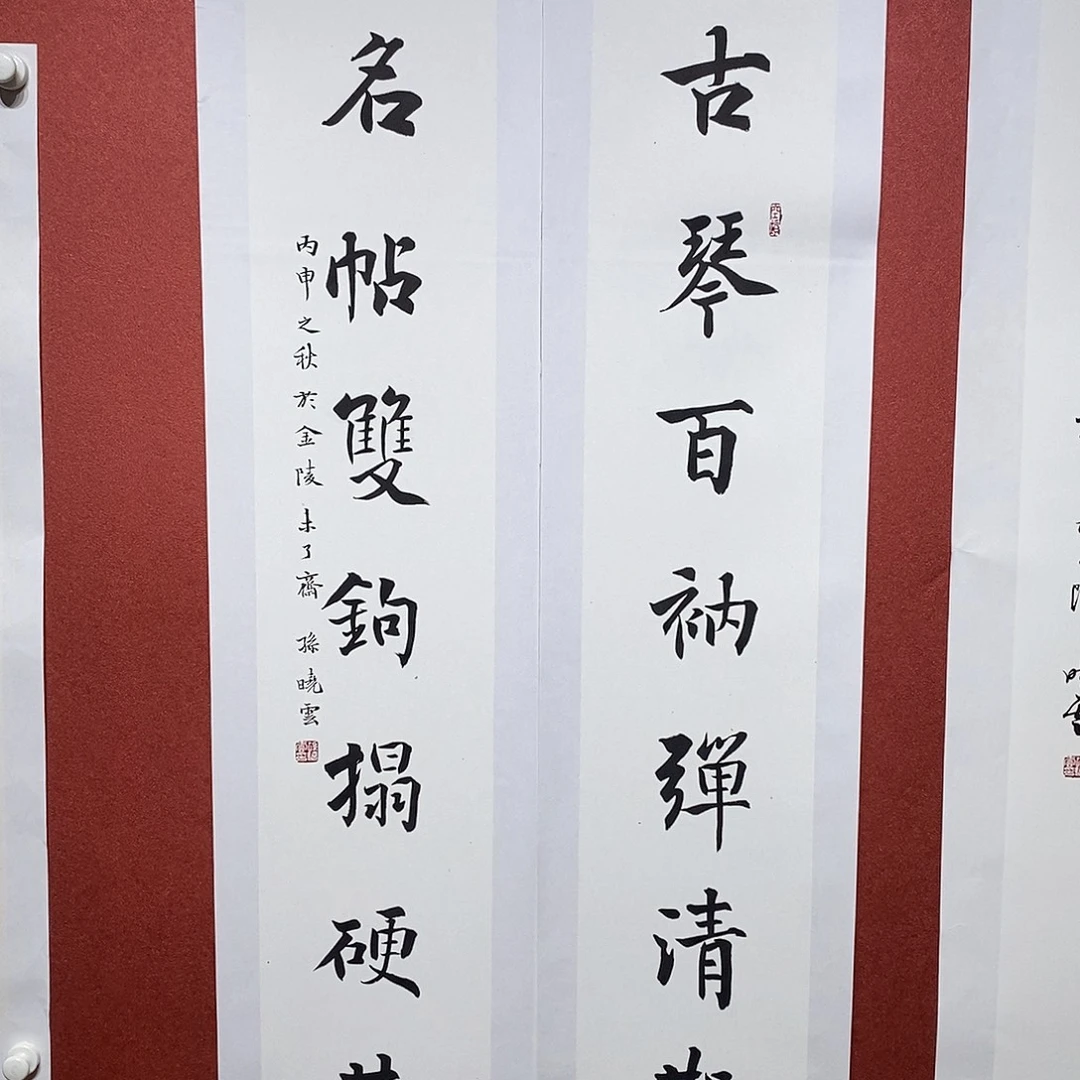 古琴百衲彈清
名帖雙鉤搨硬
丙申之秋於金陵未了齋 孫曉雲